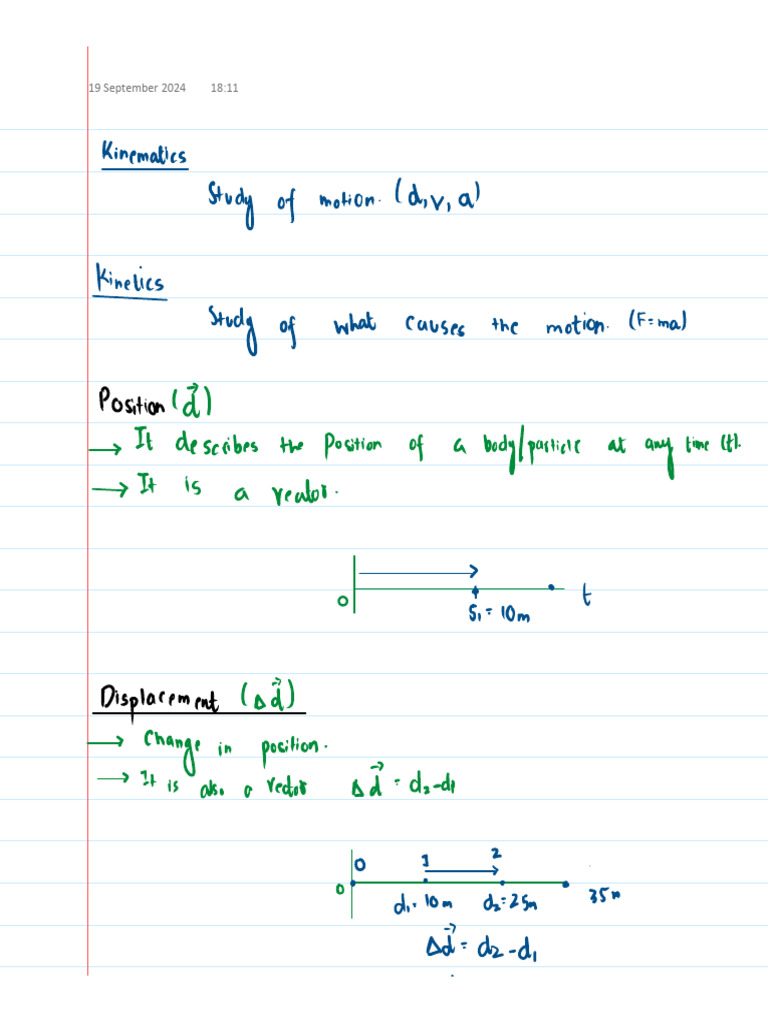 19 September 2024 18:11
Kinematics
Study of motion. (d, v, a)
Kinetics
Study of what causes the motion. (F=ma)
Position (d⃗)
→ It describes the position of a body/particle at any time (t).
→ It is a vector.
0
S₁ = 10m
t
Displacement (Δd⃗)
→ Change in position.
→ It is also a vector Δd⃗ = d₂-d₁
0 1 2
0
d₁ = 10m d₂ = 25m 35m
Δd⃗ = d₂-d₁